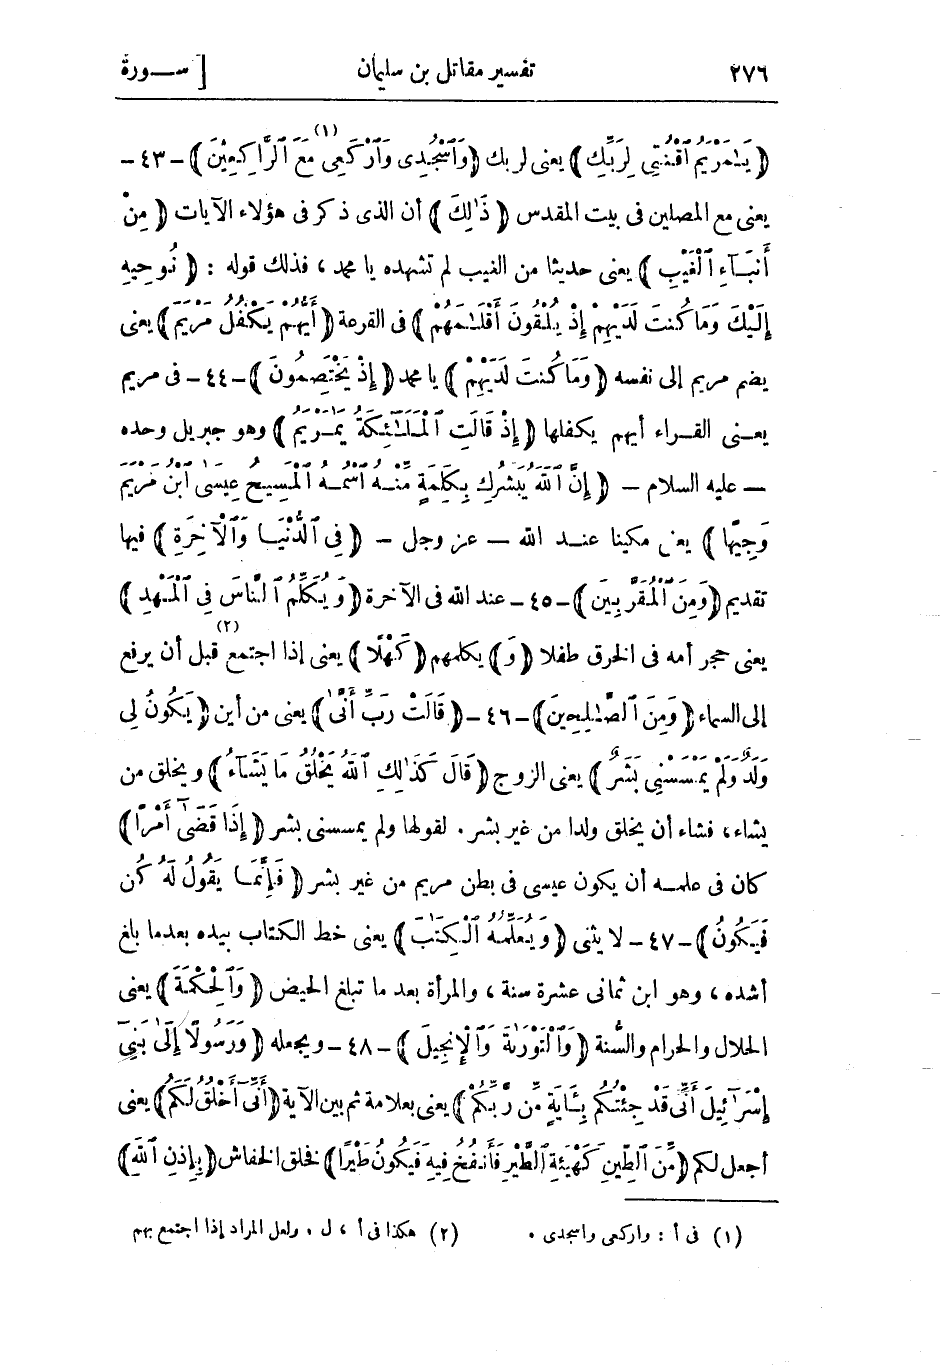 ٢٧٦ تفسير مقاتل بن سليمان [ ســورة
﴿ يَـٰمَرْيَمُ ٱقْنُتِى لِرَبِّكِ ﴾ يعنى لربك ﴿ وَٱسْجُدِى وَٱرْكَعِى (١) مَعَ ٱلرَّاكِعِينَ ﴾ - ٤٣ -
يعنى مع المصلين فى بيت المقدس ﴿ ذَٰلِكَ ﴾ أن الذى ذكر فى هؤلاء الآيات ﴿ مِنْ
أَنبَـآءِ ٱلْغَيْبِ ﴾ يعنى حديثا من الغيب لم تشهده يا محمد ، فذلك قوله : ﴿ نُوحِيهِ
إِلَيْكَ وَمَا كُنتَ لَدَيْهِمْ إِذْ يُلْقُونَ أَقْلَـٰمَهُمْ ﴾ فى القرعة ﴿ أَيُّهُمْ يَكْفُلُ مَرْيَمَ ﴾ يعنى
يضم مريم إلى نفسه ﴿ وَمَا كُنتَ لَدَيْهِمْ ﴾ يا محمد ﴿ إِذْ يَخْتَصِمُونَ ﴾ - ٤٤ - فى مريم
يعــنى القــراء أيهم يكفلها ﴿ إِذْ قَالَتِ ٱلْمَلَـٰٓئِكَةُ يَـٰمَرْيَمُ ﴾ وهو جبريل وحده
— عليه السلام — ﴿ إِنَّ ٱللَّهَ يُبَشِّرُكِ بِكَلِمَةٍ مِّنْـهُ ٱسْمُـهُ ٱلْمَسِيحُ عِيسَى ٱبْنُ مَرْيَمَ
وَجِيهًا ﴾ يعنى مكينا عنــد الله — عز وجل — ﴿ فِى ٱلدُّنْيَـا وَٱلْآخِرَةِ ﴾ فيها
تقديم ﴿ وَمِنَ ٱلْمُقَرَّبِينَ ﴾ - ٤٥ - عند الله فى الآخرة ﴿ وَيُكَلِّمُ ٱلنَّاسَ فِى ٱلْمَهْدِ ﴾
يعنى حجر أمه فى الخرق طفلا ﴿ وَ ﴾ يكلمهم ﴿ كَهْلًا ﴾ يعنى إذا اجتمع (٢) قبل أن يرفع
إلى السماء ﴿ وَمِنَ ٱلصَّـٰلِحِينَ ﴾ - ٤٦ - ﴿ قَالَتْ رَبِّ أَنَّىٰ ﴾ يعنى من أين ﴿ يَكُونُ لِى
وَلَدٌ وَلَمْ يَمْسَسْنِى بَشَرٌ ﴾ يعنى الزوج ﴿ قَالَ كَذَٰلِكِ ٱللَّهُ يَخْلُقُ مَا يَشَآءُ ﴾ ويخلق من
يشاء، فشاء أن يخلق ولدا من غير بشر . لقولها ولم يمسسنى بشر ﴿ إِذَا قَضَىٰٓ أَمْرًا ﴾
كان فى علمــه أن يكون عيسى فى بطن مريم من غير بشر ﴿ فَإِنَّمَـا يَقُولُ لَهُ كُن
فَيَكُونُ ﴾ - ٤٧ - لا يثنى ﴿ وَيُعَلِّمُهُ ٱلْكِتَـٰبَ ﴾ يعنى خط الكتاب بيده بعدما بلغ
أشده ، وهو ابن ثمانى عشرة سنة ، والمرأة بعد ما تبلغ الحيض ﴿ وَٱلْحِكْمَةَ ﴾ يعنى
الحلال والحرام والسُّنة ﴿ وَٱلتَّوْرَىٰةَ وَٱلْإِنجِيلَ ﴾ - ٤٨ - ويجعله ﴿ وَرَسُولًا إِلَىٰ بَنِىٓ
إِسْرَٰٓءِيلَ أَنِّى قَدْ جِئْتُكُم بِـَٔايَةٍ مِّن رَّبِّكُمْ ﴾ يعنى بعلامة ثم بين الآية ﴿ أَنِّىٓ أَخْلُقُ لَكُم ﴾ يعنى
أجعل لكم ﴿ مِّنَ ٱلطِّينِ كَهَيْئَةِ ٱلطَّيْرِ فَأَنفُخُ فِيهِ فَيَكُونُ طَيْرًا ﴾ فخلق الخفاش ﴿ بِإِذْنِ ٱللَّهِ ﴾
(١) فى أ : واركعى واسجدى . (٢) هكذا فى أ ، ل . ولعل المراد إذا اجتمع بهم